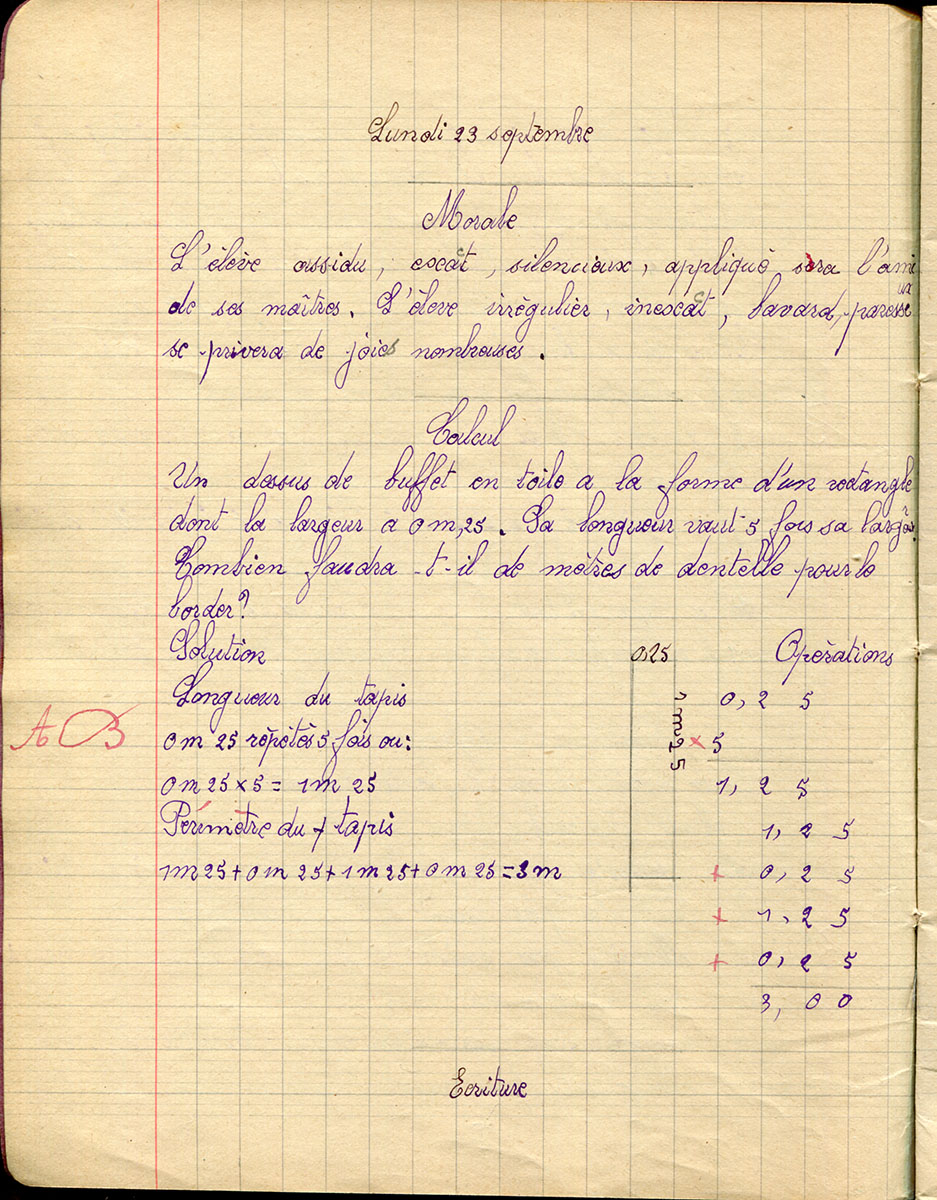 Lundi 23 septembre
Morale
L'élève assidu, exact, silencieux, appliqué sera l'ami
de ses maîtres. L'élève irrégulier, inexact, bavard, paresseux
se privera de joies nombreuses.
Calcul
Un dessus de buffet en toile a la forme d'un rectangle
dont la largeur a 0m,25. Sa longueur vaut 5 fois sa
Combien faudra-t-il de mètres de dentelle pour le
border?
Solution
0,25
Opérations
Longueur du tapis
0m 25 répétés 5 fois ou:
0m 25 × 5 = 1m 25
Périmètre du tapis
1m 25 + 0m 25 + 1m 25 + 0m 25 = 3m
AB
1m25
0,25
× 5
1,25
1,25
+ 0,25
+ 1,25
+ 0,25
3,00
Ecriture